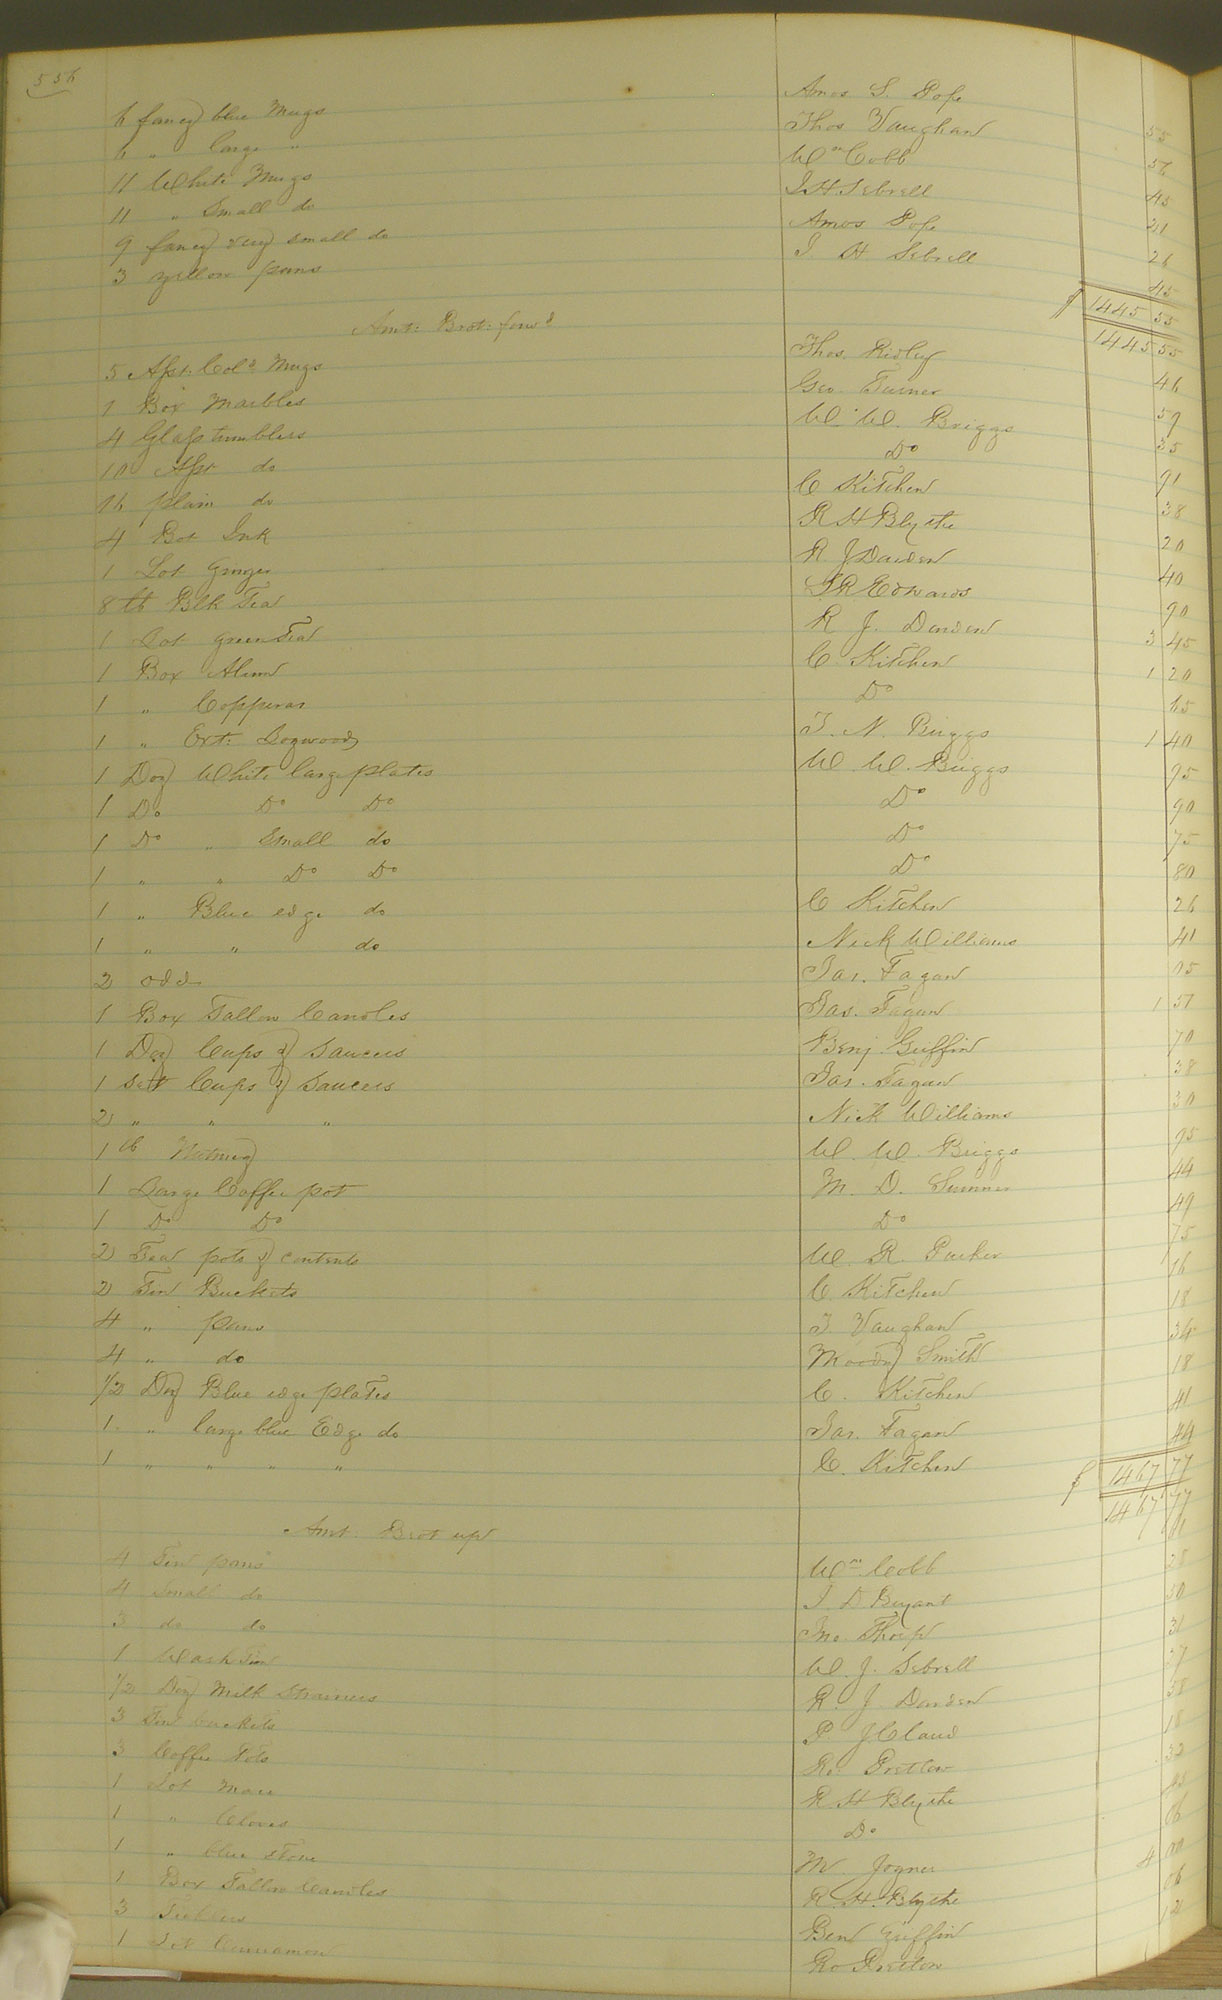 556
6 fancy blue Mugs Amos S. Pope 55
6 " large " Thos Vaughan 56
11 White Mugs Wm Cobb 45
11 " Small do J H Sebrell 21
9 fancy very small do Amos Pope 26
3 yellow pans J. H Sebrell 45
$ 1445 55
Amt: Brot: forwd 1445 55
5 Asst. Cold Mugs Thos. Ridley 46
1 Box Marbles Geo. Turner 59
4 Glass tumblers W. W. Briggs 35
10 Asst do Do 91
16 plain do C Kitchen 38
4 Bot Ink R H Blythe 20
1 Lot Ginger R J Darden 40
8 lb Blk Tea J R Edwards 90
1 Lot green Tea R J. Darden 3 45
1 Box Alum C. Kitchen 1 20
1 " Copperas Do 65
1 " Ext: Logwood J. N. Briggs 1 40
1 Doz White large plates W. W. Briggs 95
1 Do Do Do Do 90
1 Do " Small do Do 75
1 " " Do Do Do 80
1 " Blue edge do C Kitchen 26
1 " " do Nick Williams 41
2 odd Jas. Fagan 05
1 Box Tallow Candles Jas. Fagan 1 57
1 Doz Cups & Saucers Benj Griffin 70
1 set Cups & Saucers Jas. Fagan 38
2 " " " Nick Williams 30
1 lb Nutmeg W. W. Briggs 95
1 Large Coffee pot M. D. Sumner 44
1 Do Do Do 49
2 Tea pots & contents W. R. Parker 75
2 Tin Buckets C. Kitchen 16
4 " pans T. Vaughan 18
4 " do Moody Smith 34
1/2 Doz Blue edge plates C. Kitchen 18
1. " large blue Edge do Jas. Fagan 41
1 " " " " C. Kitchen 44
$ 1467 77
Amt: Brot up 1467 77
4 Tin pans Wm Cobb
4 Small do J. D Bryant
3 do do Jno. Thorp
1 Wash Tin W. J. Sebrell
1/2 Doz Milk Strainers R. J. Darden
3 Tin buckets P. J Claud
3 Coffee Pots Ro. Pretlow
1 Lot Mace R H Blythe
1 " Cloves Do
1 " blue stone M Joyner
1 Box Tallow Candles R. H. Blythe
3 Ben Griffin
1 Cinnamon Ro Pretlow